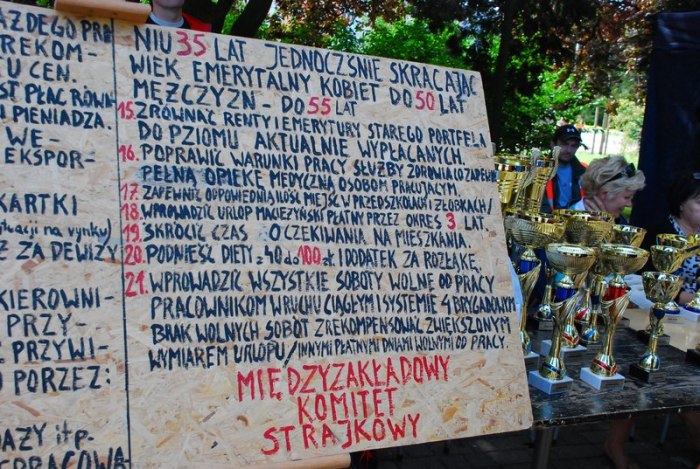 AŻDEGO PRA
REKOM-
TU CEN.
ST PŁAC RÓWN
I PIENIADZA.
WE-
EKSPOR-
KARTKI
Z ZA DEWIZY
KIEROWNI-
PRZY-
PRZYWI-
O PORZEZ:
DAZY itp-
NIU 35 LAT JEDNOCZŚNIE SKRACAJĄC
WIEK EMERYTALNY KOBIET DO 50 LAT
MEŻCZYZN - DO 55 LAT
15. ZRÓWNAĆ RENTY I EMERYTURY STAREGO PORTFELA
DO PZIOMU AKTUALNIE WYPŁACANYCH.
16. POPRAWIĆ WARUNKI PRACY SŁUŻBY ZDROWIA (O ZAPEW
PEŁNĄ OPIEKĘ MEDYCZNĄ OSOBOM PRACUJĄCYM.
17. ZAPEWNIĆ ODPOWIEDNIĄ ILOŚĆ MIEJSC W PRZEDSZKOLACH I ŻŁOBKACH/
18. WPROWADZIĆ URLOP MACIEŻYŃSKI PŁATNY PRZEZ OKRES 3 LAT.
19. SKRÓCIĆ CZAS OCZEKIWANIA NA MIESZKANIA.
20. PODNIEŚĆ DIETY z 40 do 100 zł I DODATEK ZA ROZŁĄKĘ.
21. WPROWADZIĆ WSZYSTKIE SOBOTY WOLNE OD PRACY
PRACOWNIKOM W RUCHU CIĄGŁYM I SYSTEMIE 4 BRYGADOWYM
BRAK WOLNYCH SOBOT ZREKOMPENSOWAĆ ZWIĘKSZONYM
WYMIAREM URLOPU/INNYMI PŁATNYMI DNIAMI WOLNYMI OD PRACY.
MIĘDZYZAKŁADOWY
KOMITET
STRAJKOWY